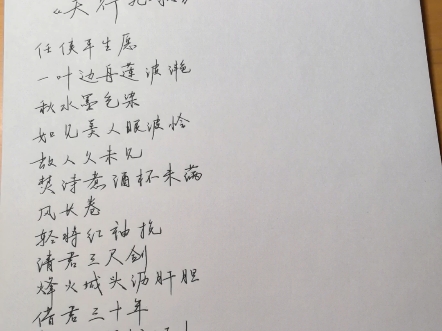 《天行九歌》
任侠平生愿
一叶边舟莲波滟
秋水墨色染
如见美人眼波怜
故人久未见
焚诗煮酒杯未满
风长卷
轻将红袖挽
请君三尺剑
烽火城头沥肝胆
借君三十年